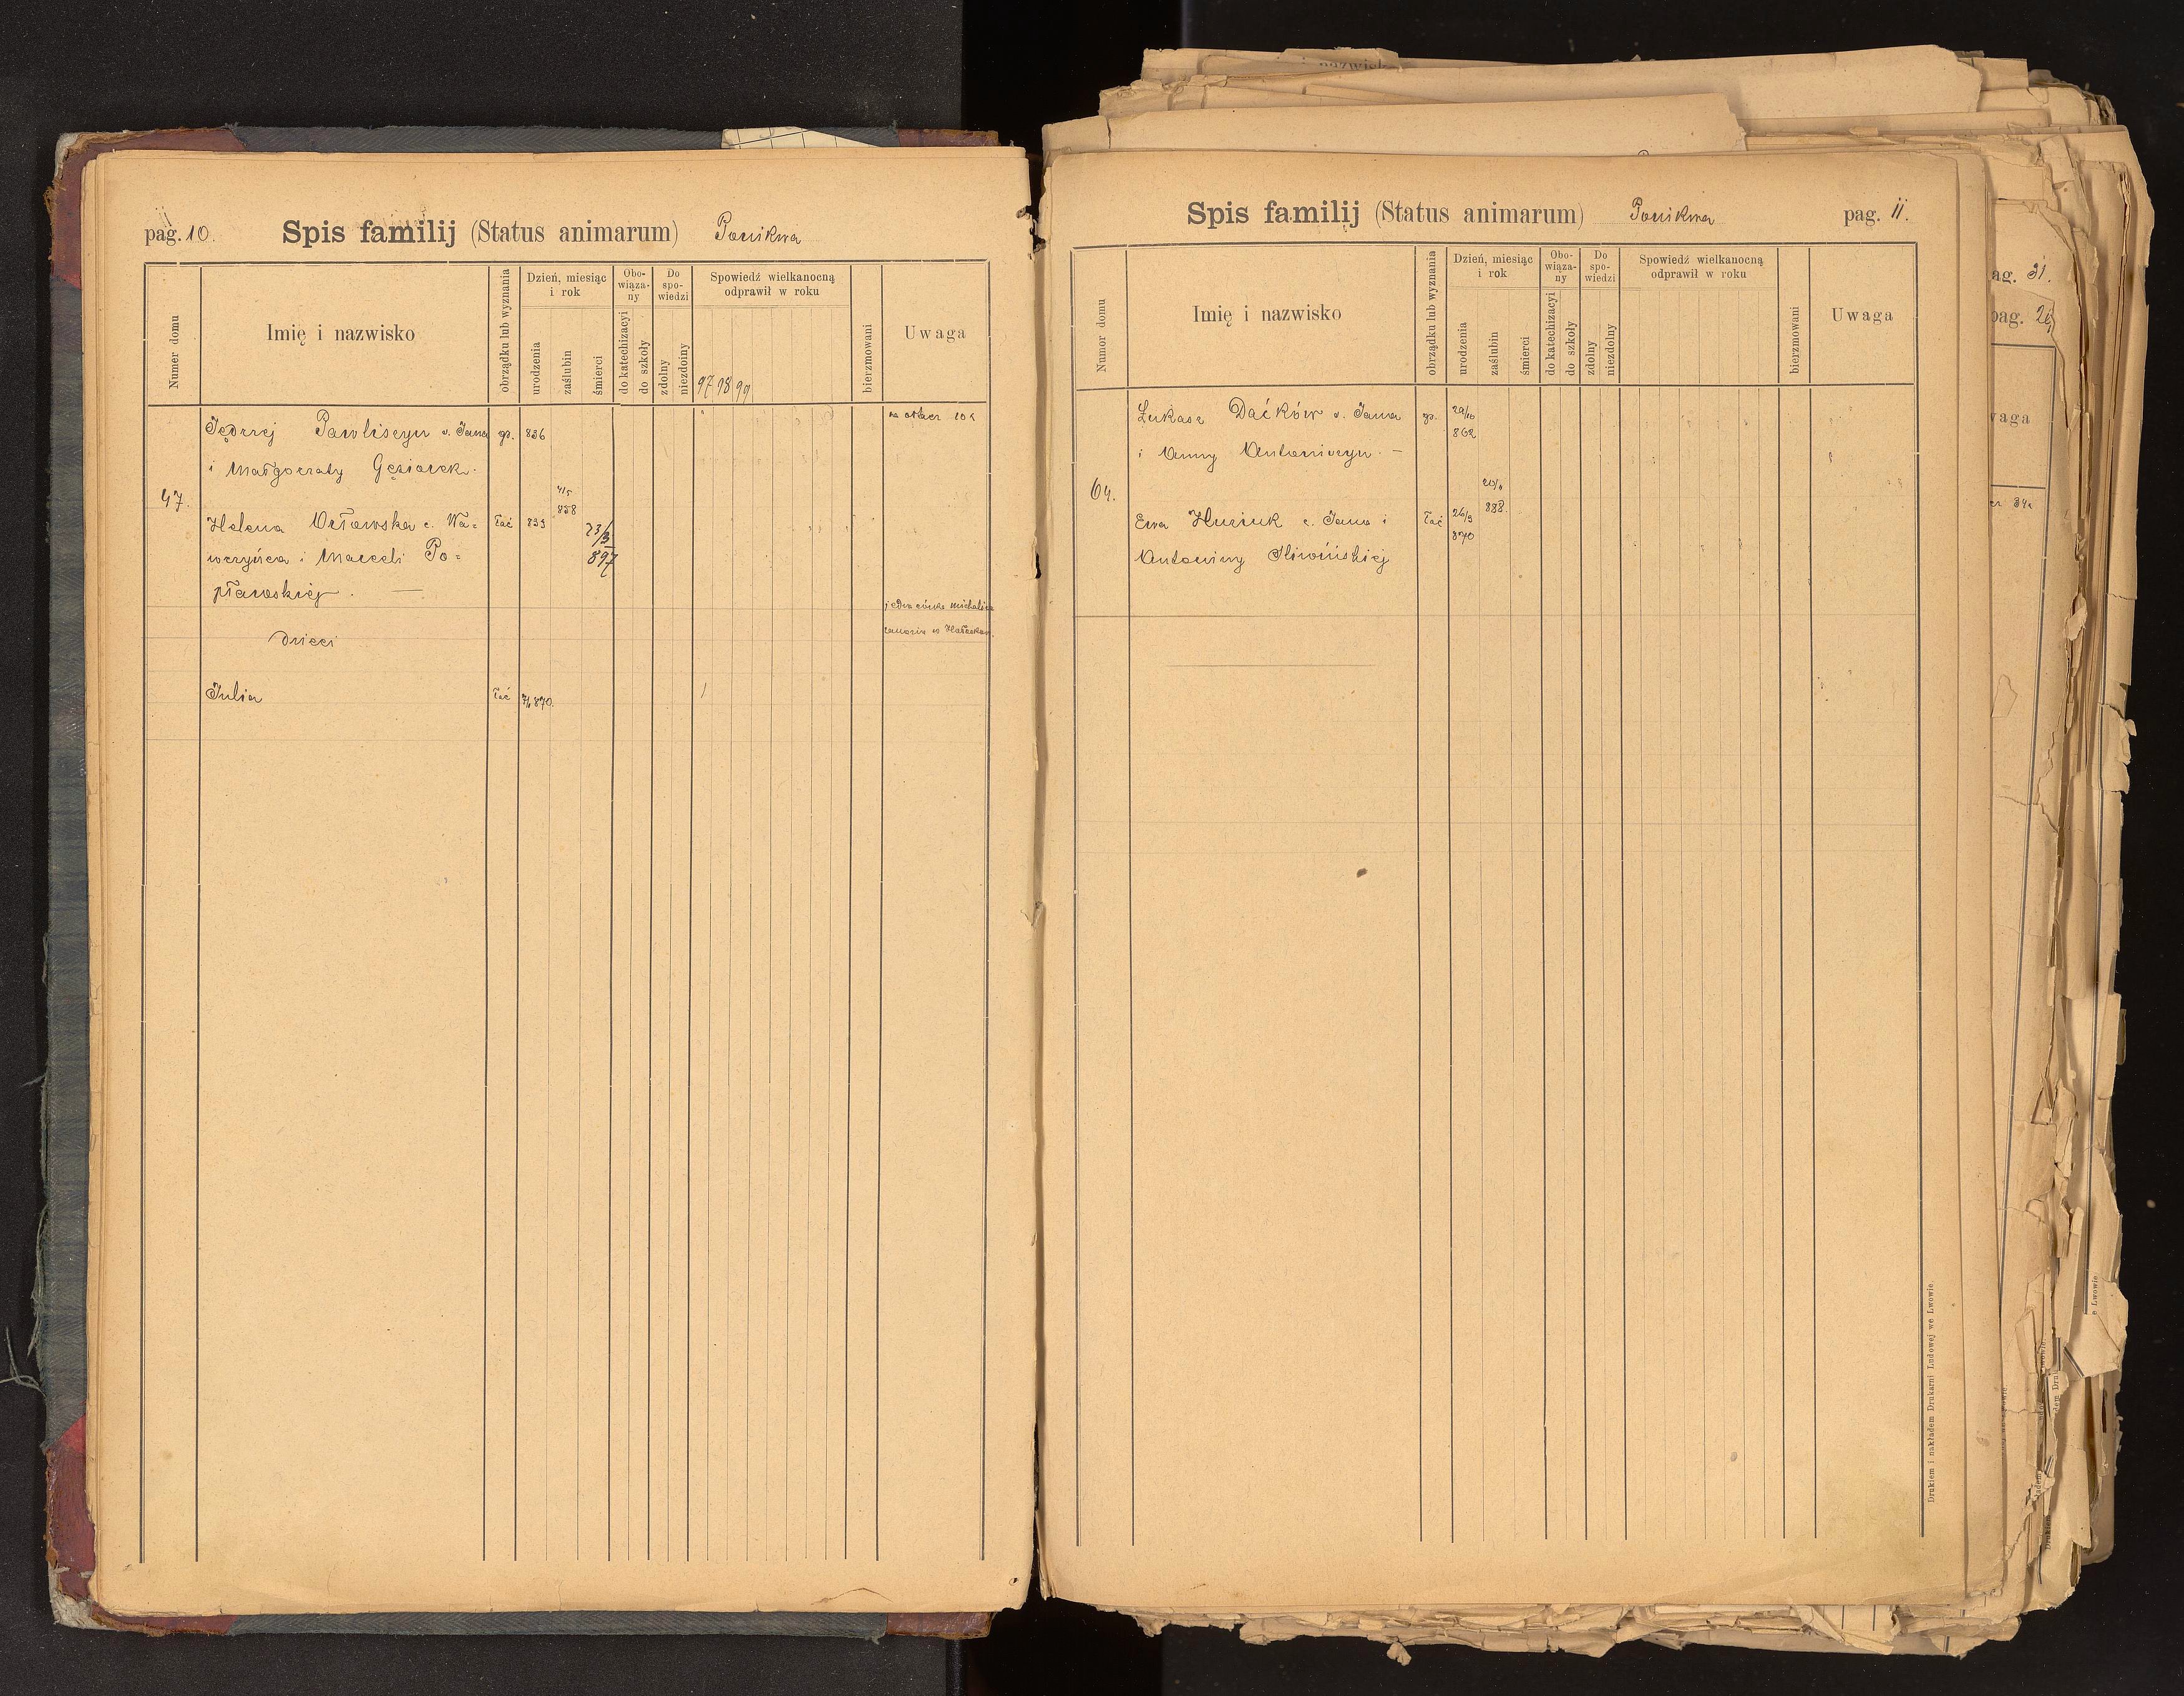 pag. 10.
Spis familij (Status animarum) Ponikwa
Numer domu
Imię i nazwisko
obrządku lub wyznania
Dzień, miesiąc i rok
urodzenia
zaślubin
śmierci
Obo-wiąza-ny
do katechizacyi
do szkoły
Do spo-wiedzi
zdolny
niezdolny
Spowiedź wielkanocną odprawił w roku
97 98 99
bierzmowani
Uwaga
Jędrzej Pawliszyn s. Jana gr. 836
i Małgorzaty Gęsiorek.
47.
4/5
858
Helena Orłowska c. Wa= łać 839
23/3
897
wrzyńca i Marceli Po=
pławskiej. —
jedna córka Michalina
dzieci
Julia łać 870.
pag. 11.
Spis familij (Status animarum) Ponikwa
Numor domu
Imię i nazwisko
obrządku lub wyznania
Dzień, miesiąc i rok
urodzenia
zaślubin
śmierci
Obo-wiąza-ny
do katechizacyi
do szkoły
Do spo-wiedzi
zdolny
niezdolny
Spowiedź wielkanocną odprawił w roku
bierzmowani
Uwaga
Łukasz Daćków s. Jana gr. 29/10
862
i Anny Antoniszyn. —
64.
888.
Ewa Huziuk c. Jana i łać 26/9
870
Antoniny Śliwińskiej
Drukiem i nakładem Drukarni Ludowej we Lwowie.
ag. 31.
pag.
waga
e Lwowie